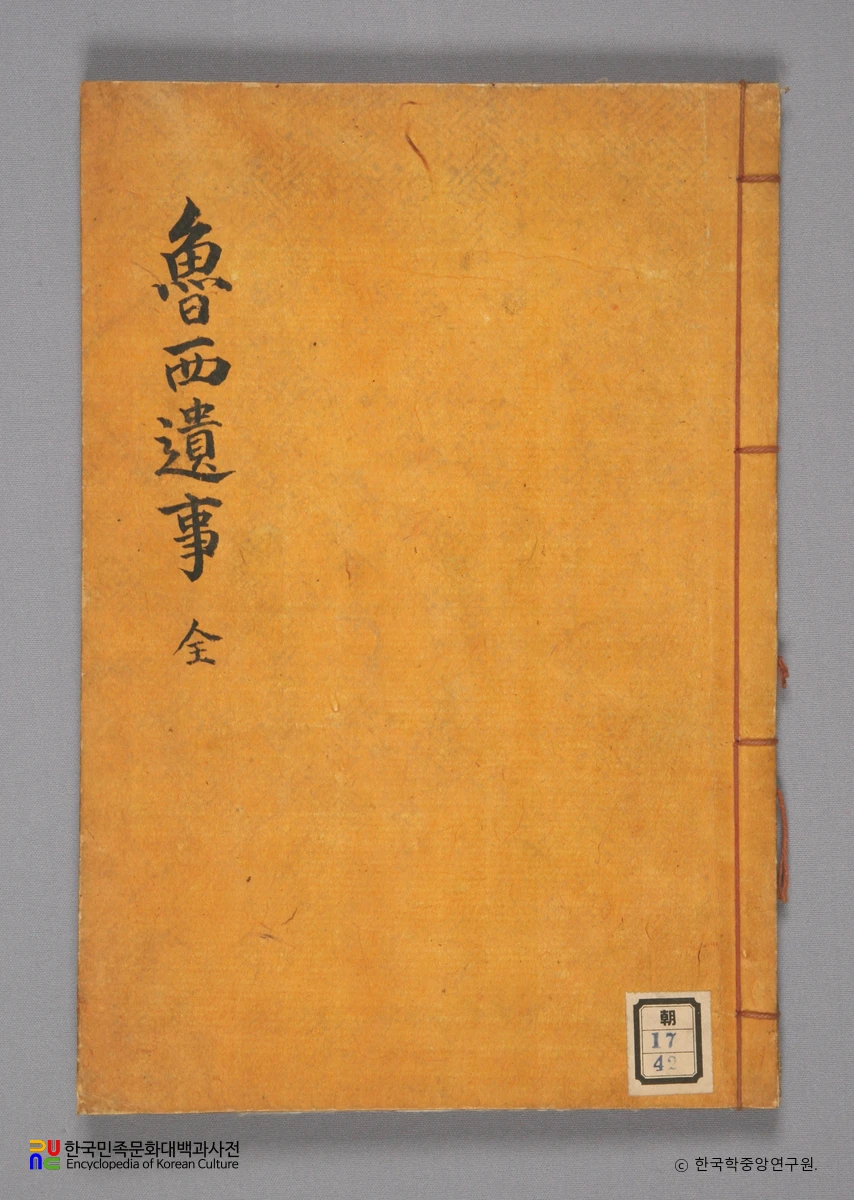 魯西遺事 全
朝
17
42
한국민족문화대백과사전
Encyclopedia of Korean Culture
© 한국학중앙연구원.